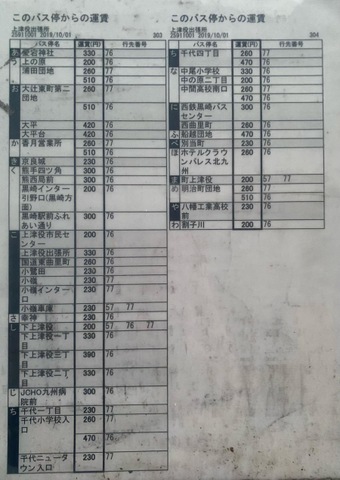 このバス停からの運賃
上津役出張所
25911001 2019/10/01 303
バス停名 運賃(円) 行先番号
あ 愛宕神社 330 76
う 上の原 200 76
浦田団地 260 77
510 76
お 大辻東町第二団地 260 77
510 76
大平 420 76
大平台 420 76
か 香月営業所 260 77
510 76
き 京良城 230 76
く 熊手四ツ角 300 76
熊西局前 300 76
黒崎インター引野口(黒崎方面) 200 76
黒崎駅前ふれあい通り 300 76
こ 上津役市民センター 200 76
上津役出張所 330 76
国道東曲里町 260 76
小鷺田 230 76
小嶺 230 77
小嶺インター口 230 77
小嶺車庫 230 57 77
さ 幸神 230 76
し 下上津役 200 57 76 77
下上津役一丁目 330 76
下上津役三丁目 390 76
下上津役二丁目 330 76
じ JCHO九州病院前 300 76
ち 千代一丁目 230 77
千代小学校入口 260 77
470 76
千代ニュータウン入口 230 77
このバス停からの運賃
上津役出張所
25911001 2019/10/01 304
バス停名 運賃(円) 行先番号
ち 千代四丁目 260 77
470 76
な 中尾小学校 330 76
中の原二丁目 200 76
中間高校南口 260 77
470 76
に 西鉄黒崎バスセンター 300 76
西曲里町 260 76
ふ 船越団地 470 76
べ 別当町 230 76
ほ ホテルクラウンパレス北九州 300 76
ま 町上津役 200 57 77
め 明治町団地 260 77
510 76
や 八幡工業高校前 230 77
わ 割子川 200 76